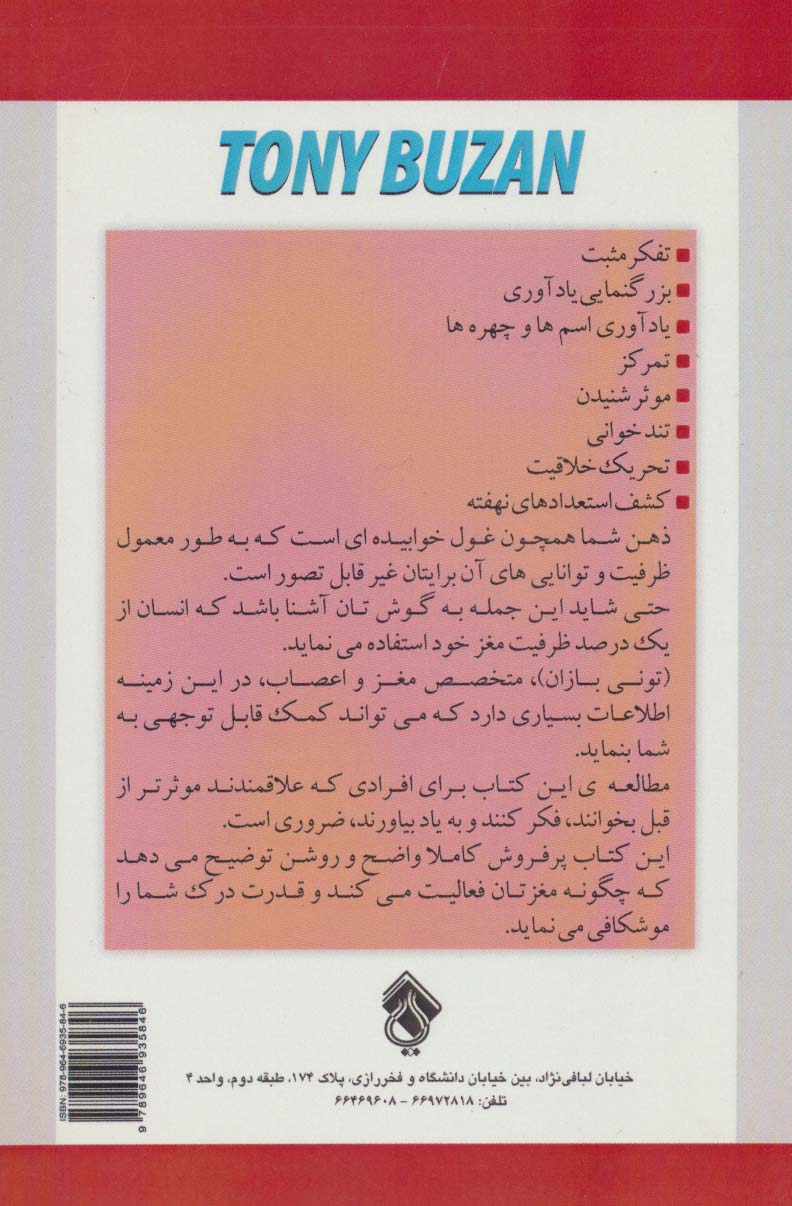 TONY BUZAN
تفکر مثبت
بزرگنمایی یادآوری
یادآوری اسم ها و چهره ها
تمرکز
موثر شنیدن
تندخوانی
تحریک خلاقیت
کشف استعدادهای نهفته
ذهن شما همچون غول خوابیده ای است که به طور معمول
ظرفیت و توانایی های آن برایتان غیر قابل تصور است.
حتی شاید این جمله به گوش تان آشنا باشد که انسان از
یک درصد ظرفیت مغز خود استفاده می نماید.
(تونی بازان)، متخصص مغز و اعصاب، در این زمینه
اطلاعات بسیاری دارد که می تواند کمک قابل توجهی به
شما بنماید.
مطالعه ی این کتاب برای افرادی که علاقمندند موثرتر از
قبل بخوانند، فکر کنند و به یاد بیاورند، ضروری است.
این کتاب پرفروش کاملا واضح و روشن توضیح می دهد
که چگونه مغزتان فعالیت می کند و قدرت درک شما را
موشکافی می نماید.
خیابان لبافی‌نژاد، بین خیابان دانشگاه و فخررازی، پلاک ۱۷۴، طبقه دوم، واحد ۴
تلفن: ۶۶۹۷۲۸۱۸ - ۶۶۴۶۹۶۰۸
ISBN: 978-964-6935-84-6
9 789646 935846